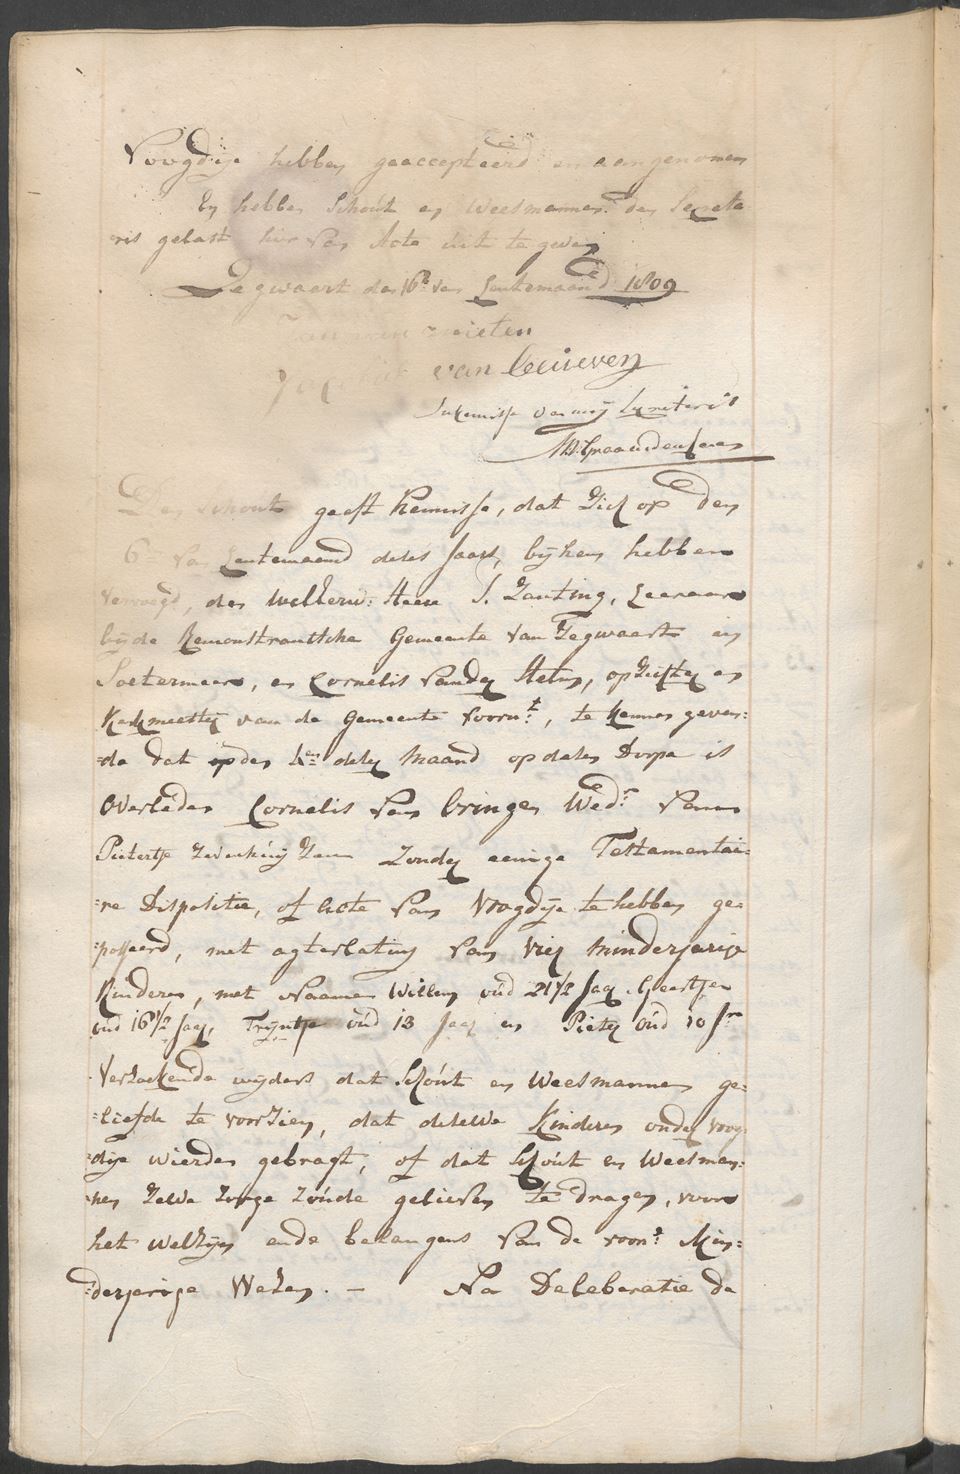 Voogdije hebben geaccepteerd en aangenomen
En hebben Schout en Weesmannen den Secreta
ris gelast hier van Acte uit te geven
Zegwaart den 16e van Lentemaand 1809
van leeuwen
In Kennisse van mij Secretaris
Den Schout geeft Kennisse, dat zich op den
6e van Lentemaand dezes Jaars, bij hem hebben
vervoegd, den WelEerw: Heere S. Zanting, Leeraar
bij de Remonstrantsche Gemeente van Zegwaart en
Soetermeer, en Cornelis vander Stelm, opzichter en
Kerkmeester van de Gemeente voorn:t, te kennen geven:
=de dat op den 4en dezer Maand op dezen Dorpe is
Overleden Cornelis van bringen Wed:r van
Pietertje Zonder eenige Testamentai=
=re Dispositie, of Acte van Voogdije te hebben ge=
=passeerd, met agterlating van Vier Minderjarige
Kinderen, met Naamen Willem oud 21 1/2 Jaar. Geertje
oud 16 1/2 Jaar, Trijntje oud 13 Jaar en Pieter oud 10 Jr
Verzoekende wijders dat Schout en Weesmannen ge=
=liefde te voorzien, dat dezelve Kinderen onder voog
=dije wierden gebragt, of dat Schout en Weesman=
=nen Zelve Zorge Zoude gelieven te dragen, voor
het welzijn ende belangens van de voorn:t Min=
=derjarige Wezen. — Na Deleberatie de